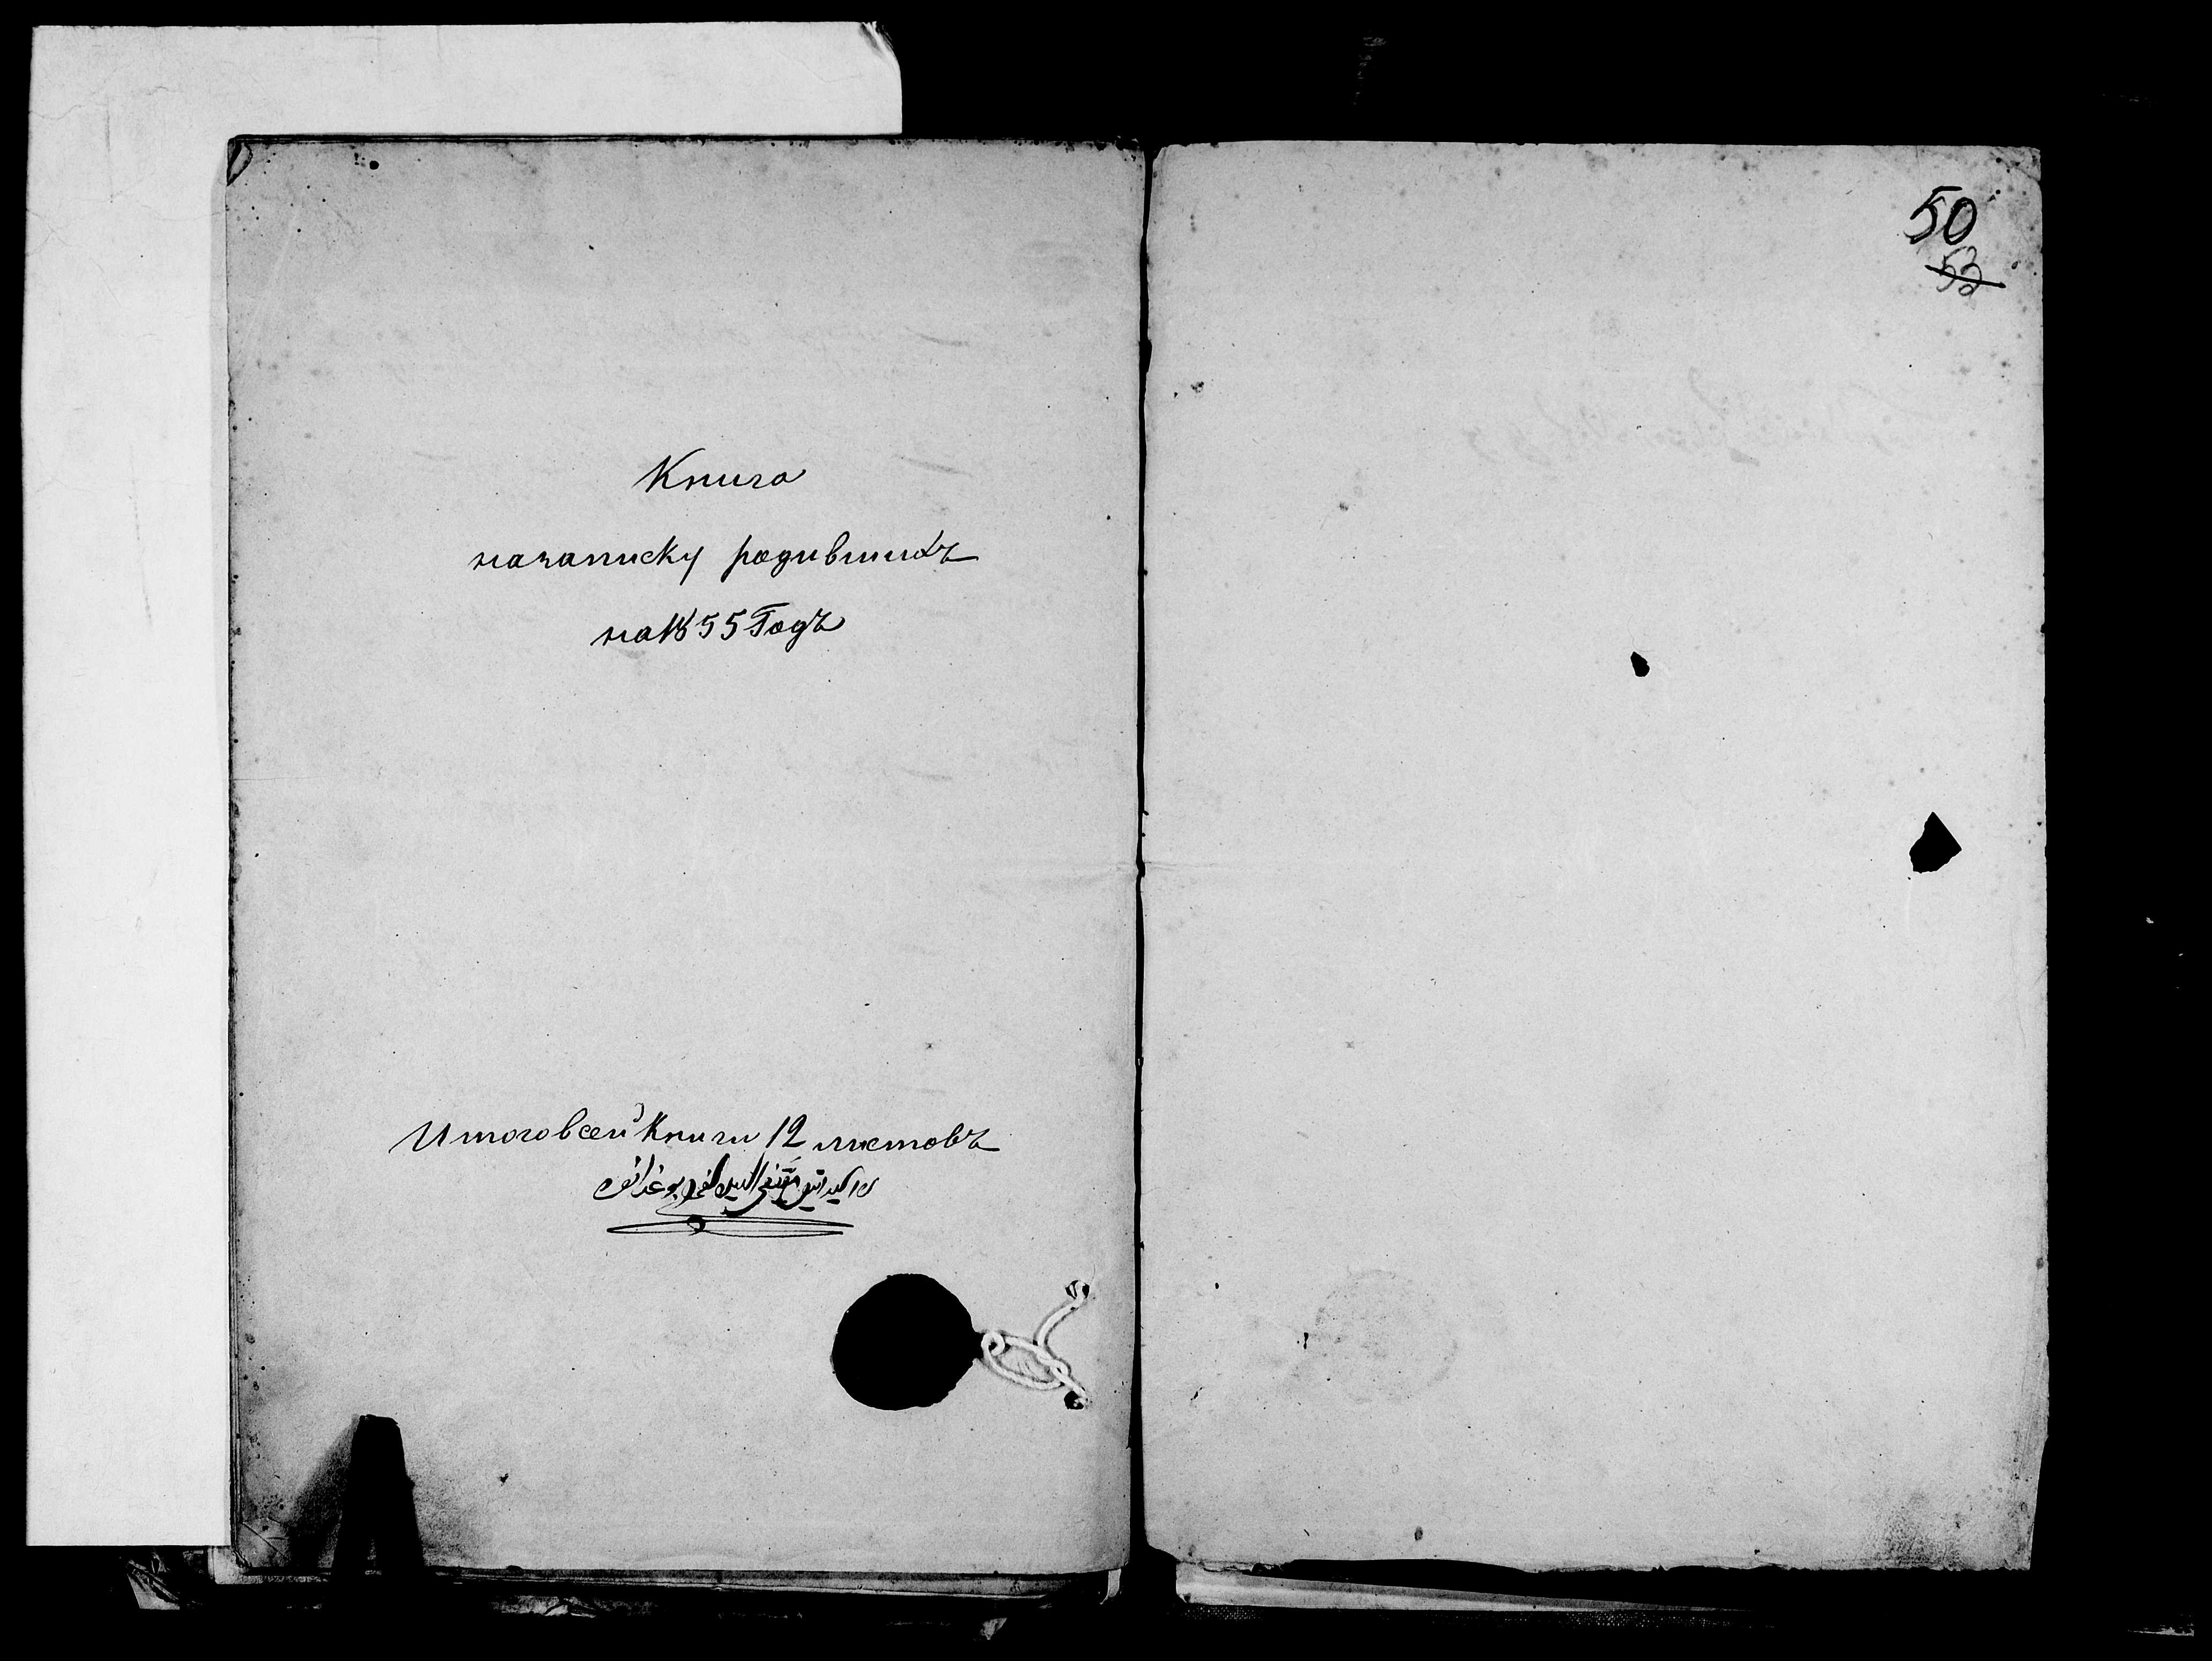 Книга
назаписку родившихъ
на 1855 Годъ
Итого всей Книги 12 листовъ
50
53